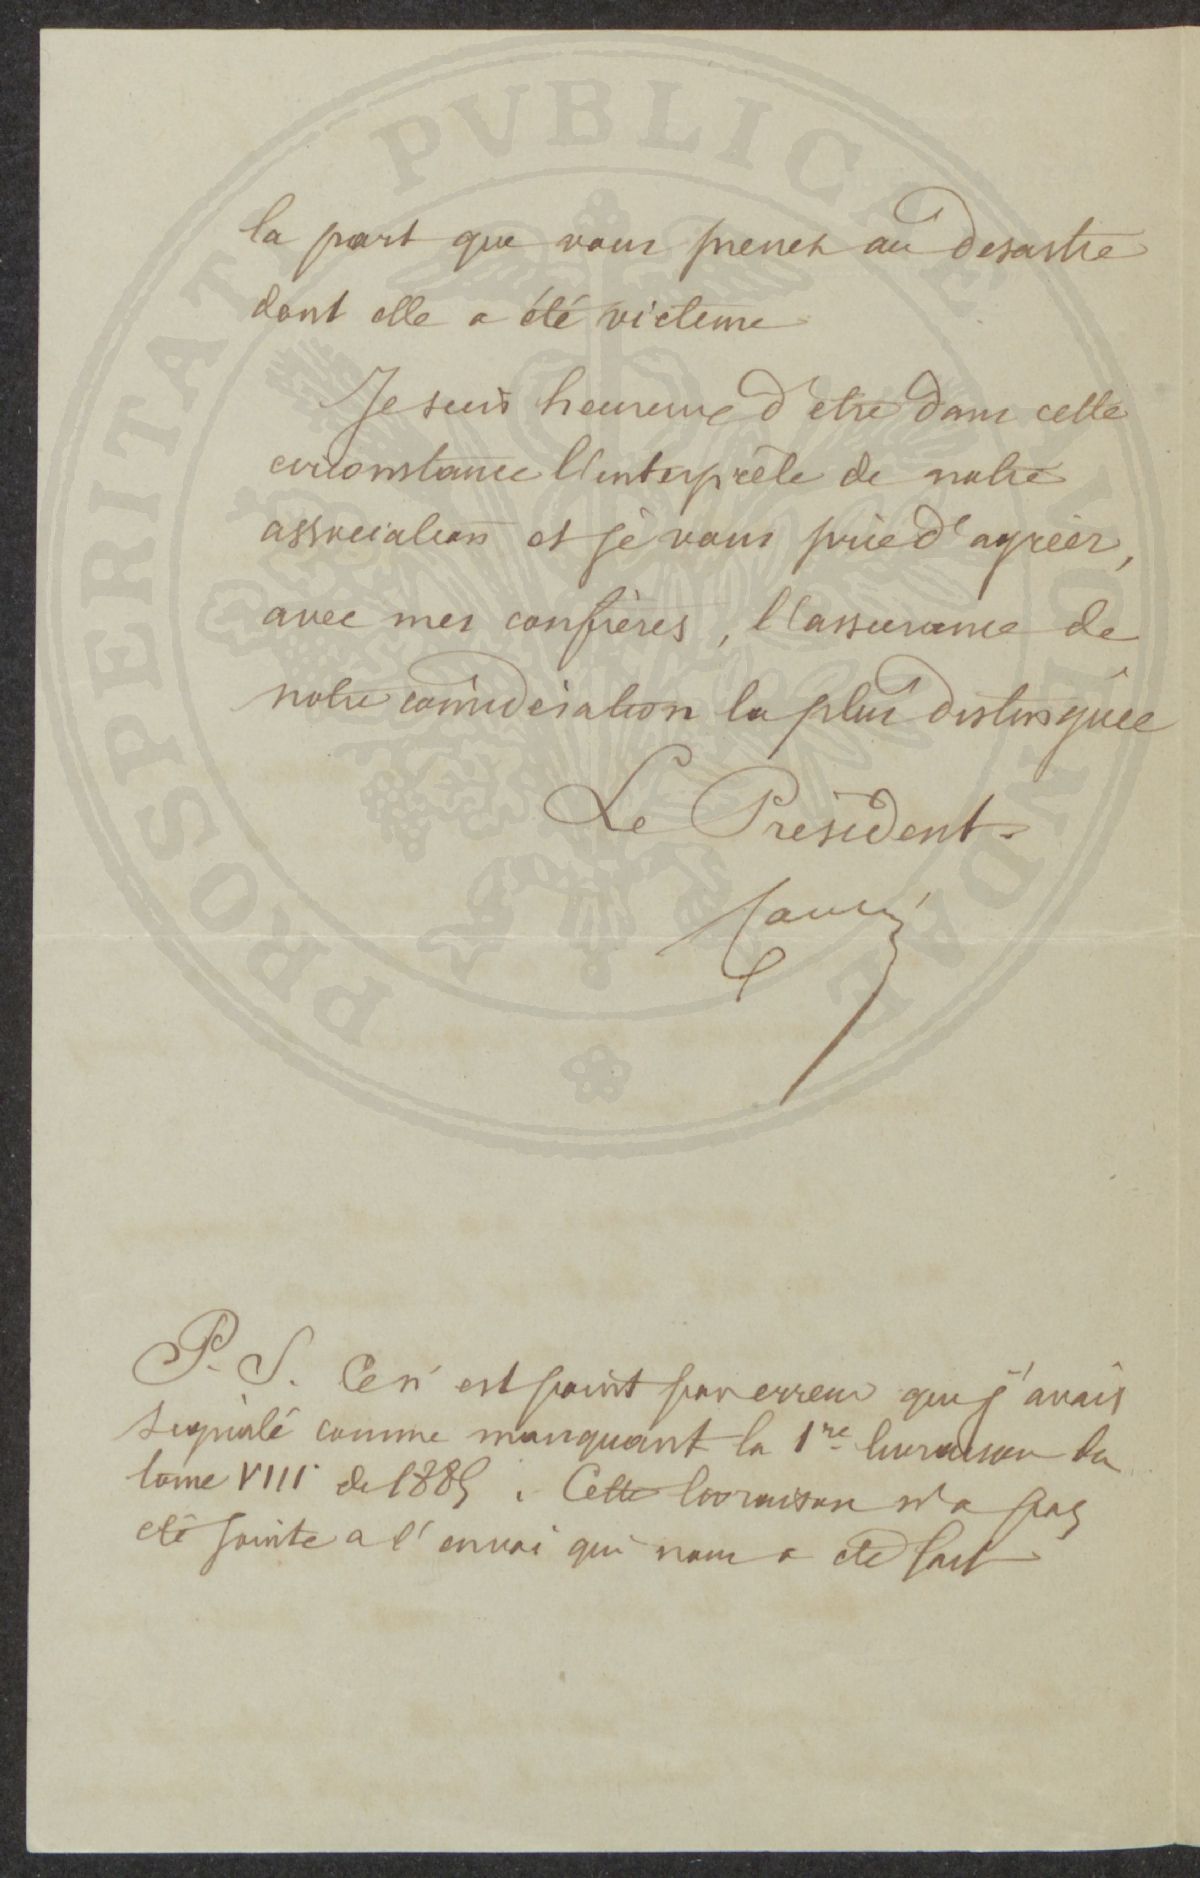 PROSPERITATI PVBLICAE AVGENDAE
la part que vous prenez au desastre
dont elle a été victime
Je suis heureux d'etre dans cette
circonstance l'interprète de notre
association et je vous prie d'agréer,
avec mes confrères, l'assurance de
notre considération la plus distinguée
Le Président.
P. S. Ce n'est point par erreur que j'avais
signalé comme manquant la 1re livraison du
tome VIII de 1885. Cette livraison n'a pas
été jointe a l'envoi qui nous a été fait